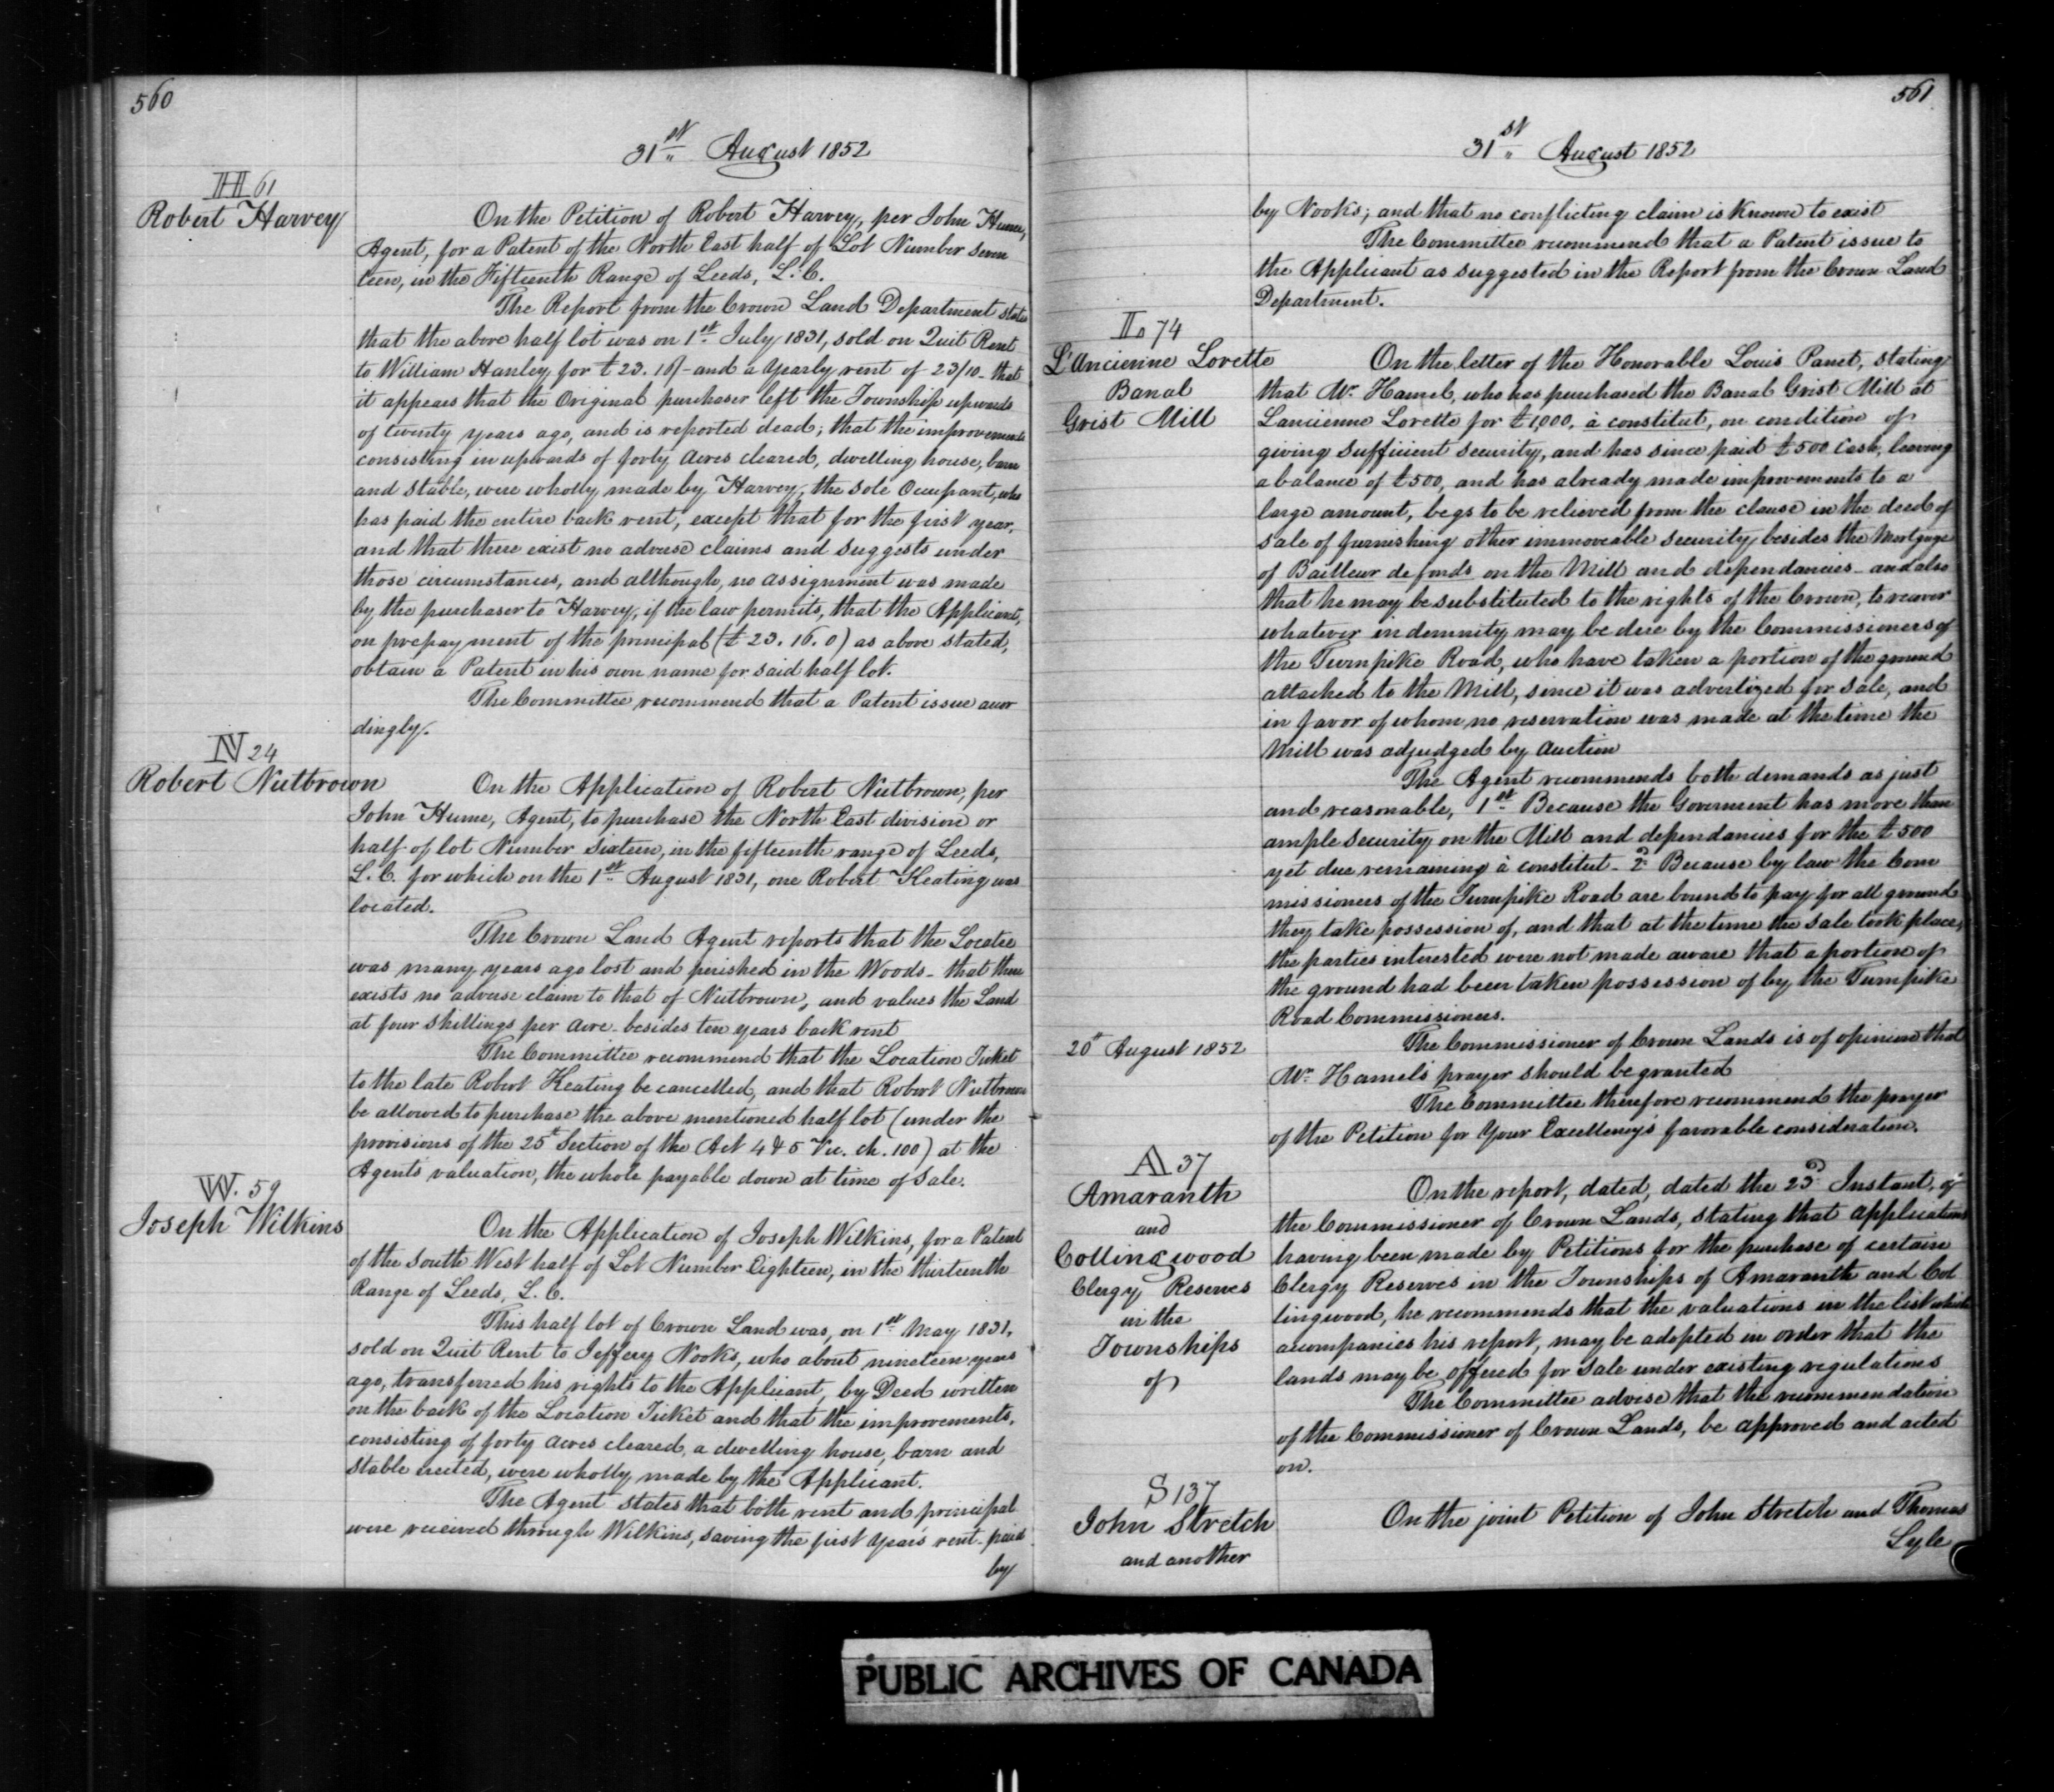 560
31st August 1852
H 61
Robert Harvey
On the Petition of Robert Harvey, per John Hume,
Agent, for a Patent of the North East half of Lot Number seven
teen, in the Fifteenth Range of Leeds, L. C.
The Report from the Crown Land Department states
that the above half lot was on 1st July 1831, sold on Quit Rent
to William Hanley for £23. 16/- and a yearly rent of 23/10 - that
it appears that the Original purchaser left the Township upwards
of twenty years ago, and is reported dead; that the improvements
consisting in upwards of forty acres cleared, dwelling house, barn
and stable, were wholly made by Harvey, the sole Occupant, who
has paid the entire back rent, except that for the first year,
and that there exist no adverse claims and suggests under
those circumstances, and although, no assignment was made
by the purchaser to Harvey, if the law permits, that the Applicant,
on prepayment of the principal (£23. 16. 0) as above stated,
obtain a Patent in his own name for said half lot.
The Committee recommend that a Patent issue accor
dingly.
N 24
Robert Nutbrown
On the Application of Robert Nutbrown, per
John Hume, Agent, to purchase the North East division or
half of lot Number Sixteen, in the fifteenth range of Leeds,
L. C. for which on the 1st August 1831, one Robert Keating was
located.
The Crown Land Agent reports that the Locatee
was many years ago lost and perished in the Woods - that there
exists no adverse claim to that of Nutbrown, and values the Land
at four shillings per Acre - besides ten years back rent
The Committee recommend that the Location Ticket
to the late Robert Keating be cancelled, and that Robert Nutbrown
be allowed to purchase the above mentioned half lot (under the
provisions of the 25th Section of the Act 4 & 5 Vic. ch. 100) at the
Agents valuation, the whole payable down at time of sale.
W. 59
Joseph Wilkins
On the Application of Joseph Wilkins, for a Patent
of the South West half of Lot Number Eighteen, in the thirteenth
Range of Leeds, L. C.
This half lot of Crown Land was, on 1st May 1831,
sold on Quit Rent to Jeffery Nooks, who about nineteen years
ago, transferred his rights to the Applicant, by Deed written
on the back of the Location Ticket and that the improvements,
consisting of forty acres cleared, a dwelling house, barn and
stable erected, were wholly made by the Applicant.
The Agent states that both rent and principal
were received through Wilkins, saving the first years rent - paid
by
561
31st August 1852
by Nooks; and that no conflicting claim is known to exist
The Committee recommend that a Patent issue to
the Applicant as suggested in the Report from the Crown Land
Department.
L 74
L'Ancienne Lorette
Banal
Grist Mill
On the letter of the Honorable Louis Panet, stating
that Mr. Hamel, who has purchased the Banal Grist Mill at
Lancienne Lorette for £1,000, à constitut, on condition of
giving sufficient security, and has since paid £500 Cash, leaving
a balance of £500, and has already made improvements to a
large amount, begs to be relieved from the clause in the deed of
sale of furnishing other immoveable security besides the Mortgage
of Bailleur de fonds on the Mill and dependancies - and also
that he may be substituted to the rights of the Crown, to recover
whatever indemnity may be due by the Commissioners of
the Turnpike Road, who have taken a portion of the ground
attached to the Mill, since it was advertized for sale, and
in favor of whom no reservation was made at the time the
Mill was adjudged by Auction
The Agent recommends both demands as just
and reasonable, 1st Because the Goverment has more than
ample security on the Mill and dependancies for the £500
yet due remaining à constitut - 2d Because by law the Com
missioners of the Turnpike Road are bound to pay for all ground
they take possession of, and that at the time the sale took place,
the parties interested were not made aware that a portion of
the ground had been taken possession of by the Turnpike
Road Commissioners.
20th August 1852
The Commissioner of Crown Lands is of opinion that
Mr. Hamel's prayer should be granted
The Committee therefore recommend the prayer
of the Petition for Your Excellency's favorable consideration.
A 37
Amaranth
and
Collingwood
Clergy Reserves
in the
Townships
of
On the report, dated, dated the 23d Instant, of
the Commissioner of Crown Lands, stating that applications
having been made by Petitions for the purchase of certain
Clergy Reserves in the Townships of Amaranth and Col
lingwood, he recommends that the valuations in the list which
accompanies his report, may be adopted in order that the
lands may be offered for sale under existing regulations
The Committee advise that the recommendation
of the Commissioner of Crown Lands, be approved and acted
on.
S 137
John Stretch
and another
On the joint Petition of John Stretch and Thomas
Lyle
PUBLIC ARCHIVES OF CANADA